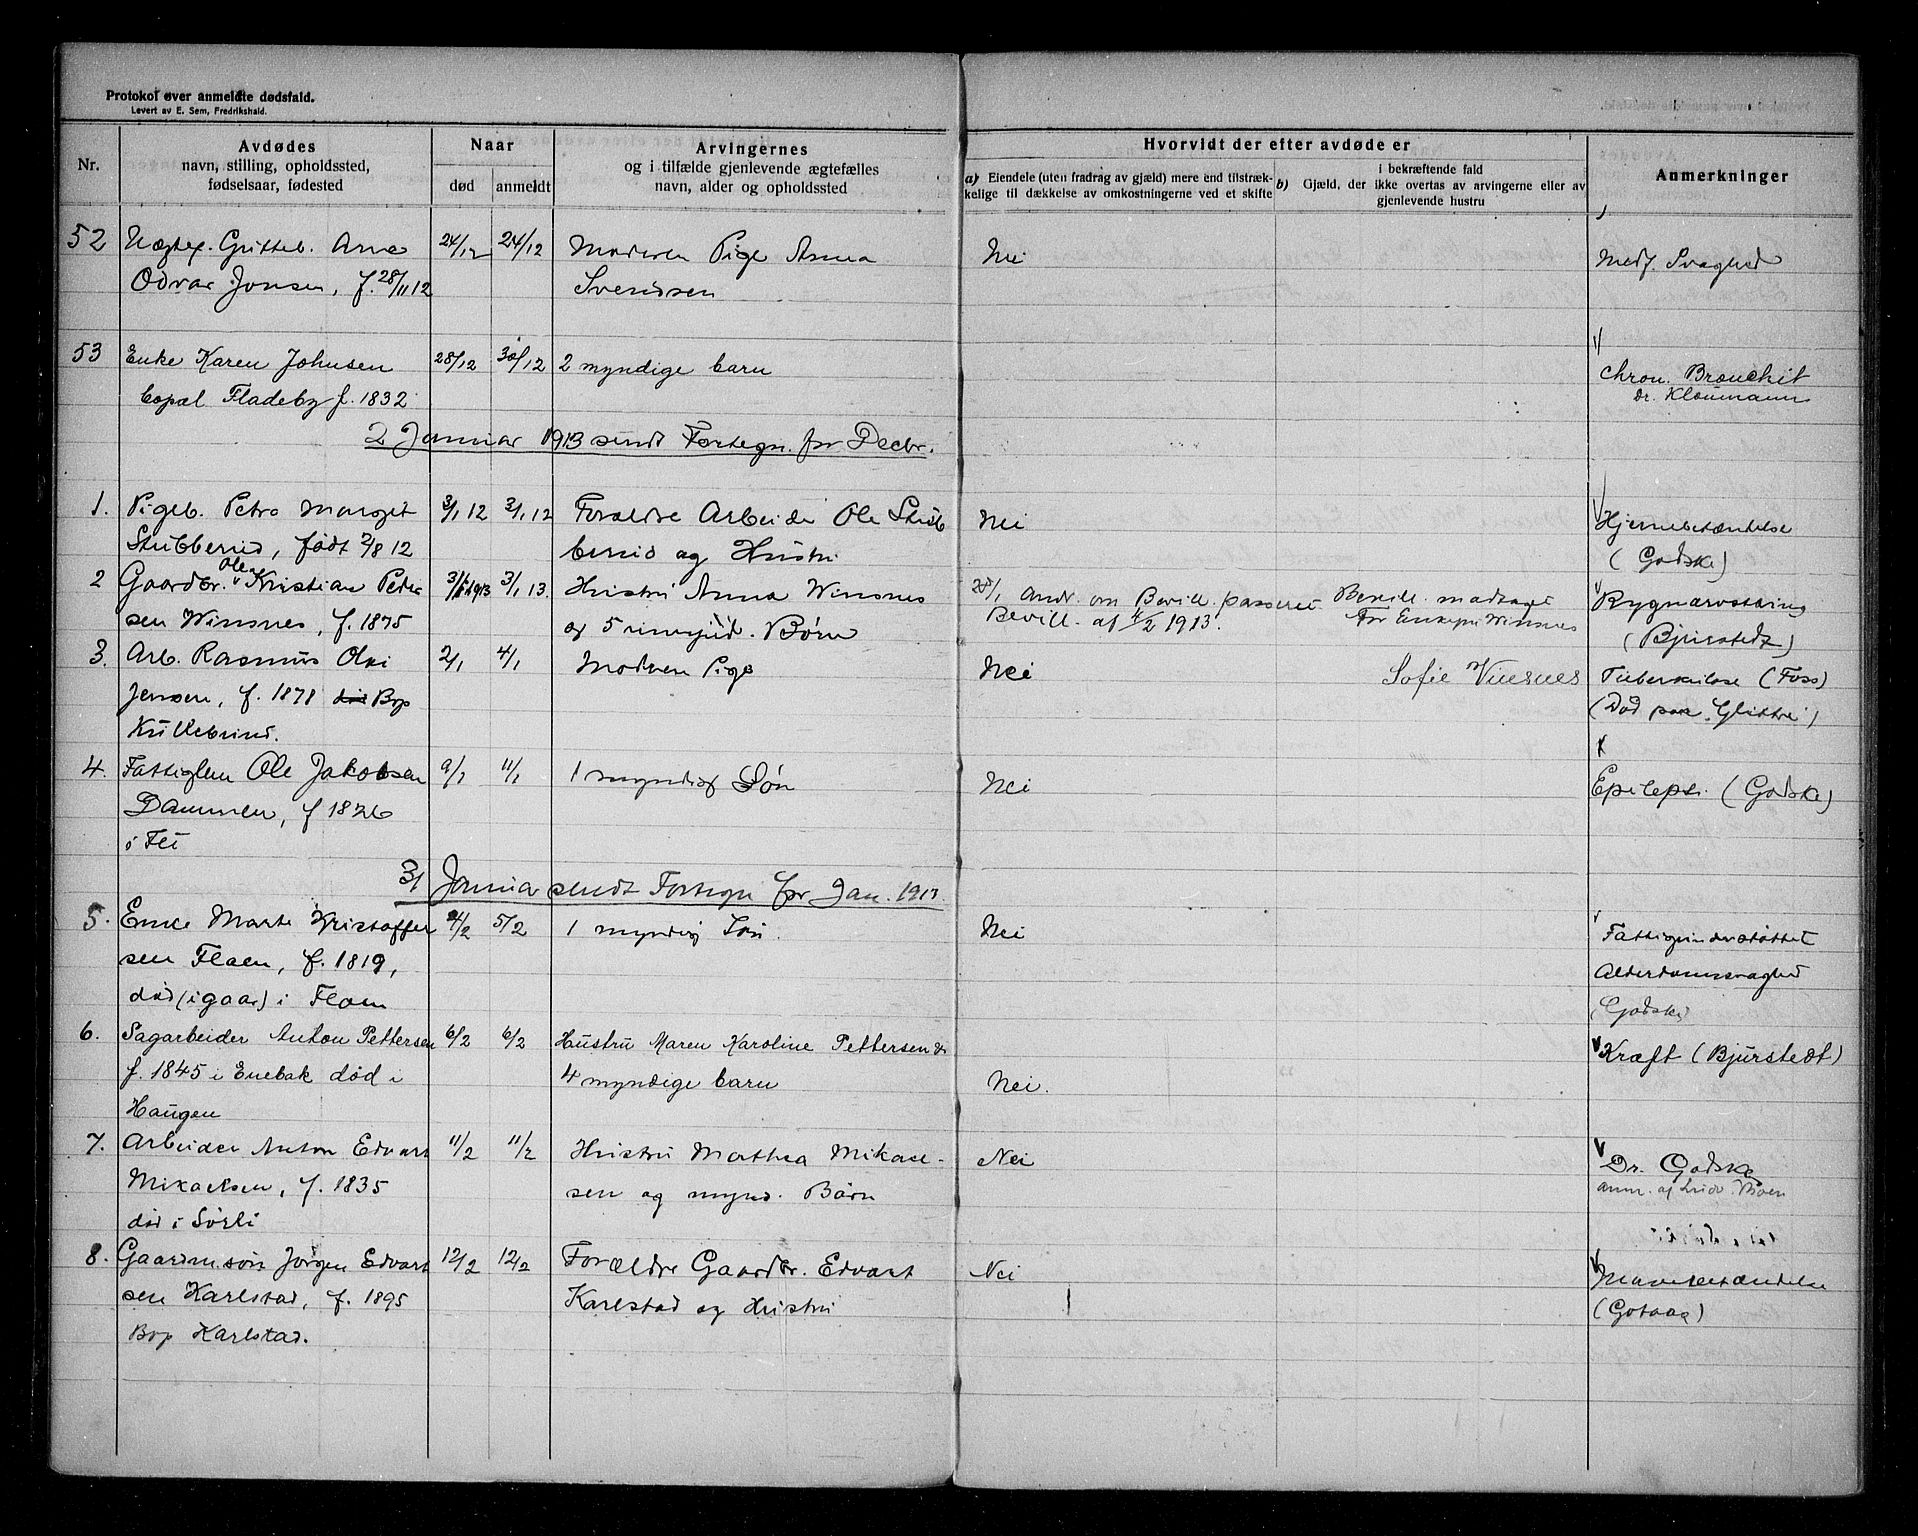 Protokol over anmeldte dødsfald.
Levert av E. Sem, Fredrikshald.
Nr.
Avdødes
navn, stilling, opholdssted,
fødselsaar, fødested
Naar
død
anmeldt
Arvingernes
og i tilfælde gjenlevende ægtefælles
navn, alder og opholdssted
Hvorvidt der efter avdøde er
a) Eiendele (uten fradrag av gjæld) mere end tilstræk-
kelige til dækkelse av omkostningerne ved et skifte
i bekræftende fald
b) Gjæld, der ikke overtas av arvingerne eller av
gjenlevende hustru
Anmerkninger
52 Uægtef. Gutteb. Arne 24/12 24/12 Moderen Pige Anna Nei Medf. Svaghed
Odvar Jonsen, f. 28/11 12 Svendsen
53 Enke Karen Johnsen 28/12 30/12 2 myndige barn Chron. Bronchit
Copal Fladeby f. 1832 Dr. Kloumann
2 Januar 1913 sendt Fortegn. for Decbr.
1. Pigeb. Petra Margit 3/1 12 3/1 12 Forældre Arbeider Ole Stub Nei Hjernebetændelse
Stubberud, født 2/8 12 berud og Hustru (Godske)
2 Gaardbr. Ole Kristian Peder 3/1 1913 3/1 13. Hustru Anna Winsnes 28/1 Andr. om Bevill. passeret. Bevill. modtaget Rygmarvstæring
sen Winsnes, f. 1875 og 5 umynd. Børn Bevill. af 4/2 1913. For Enkefru Winsnes (Bjurstedt)
3. Arb. Rasmus Olai 2/1 4/1 Moderen Pige Nei Sofie Vinsnes Tuberkulose (Foss)
Jensen, f. 1878 Bop (Død paa "Glittre")
Kullebund.
4. Fattiglem Ole Jakobsen 9/1 11/1 1 myndig Søn Nei Epilepsi. (Godske)
Dammen, f 1826
i Fet
31 Januar sendt Fortegn for Jan. 1913.
5. Enke Marte Kristoffer 4/2 5/2 1 myndig Søn. Nei Fattigunderstøttet
sen Flaen, f. 1819, Alderdomssvaghed
død (igaar) i Flaen (Godske)
6. Sagarbeider Anton Pettersen 6/2 6/2 Hustru Maren Karoline Pettersen &. Kræft (Bjurstedt)
f. 1845 i Enebak død i 4 myndige barn Nei.
Haugen
7. Arbeider Anton Edvart 11/2 11/2 Hustru Mathea Mikael- Nei Dr. Godske
Mikaelsen, f. 1835 sen og mynd. Børn anm. af Ludv. Moen
død i Sørli
8. Gaardm.søn Jørgen Edvart 12/2 12/2 Forældre Gaardbr. Edvart Nei Mavebetændelse
sen Karlstad, f. 1895 Karlstad og Hustru (Gotaas)
Bop Karlstad.